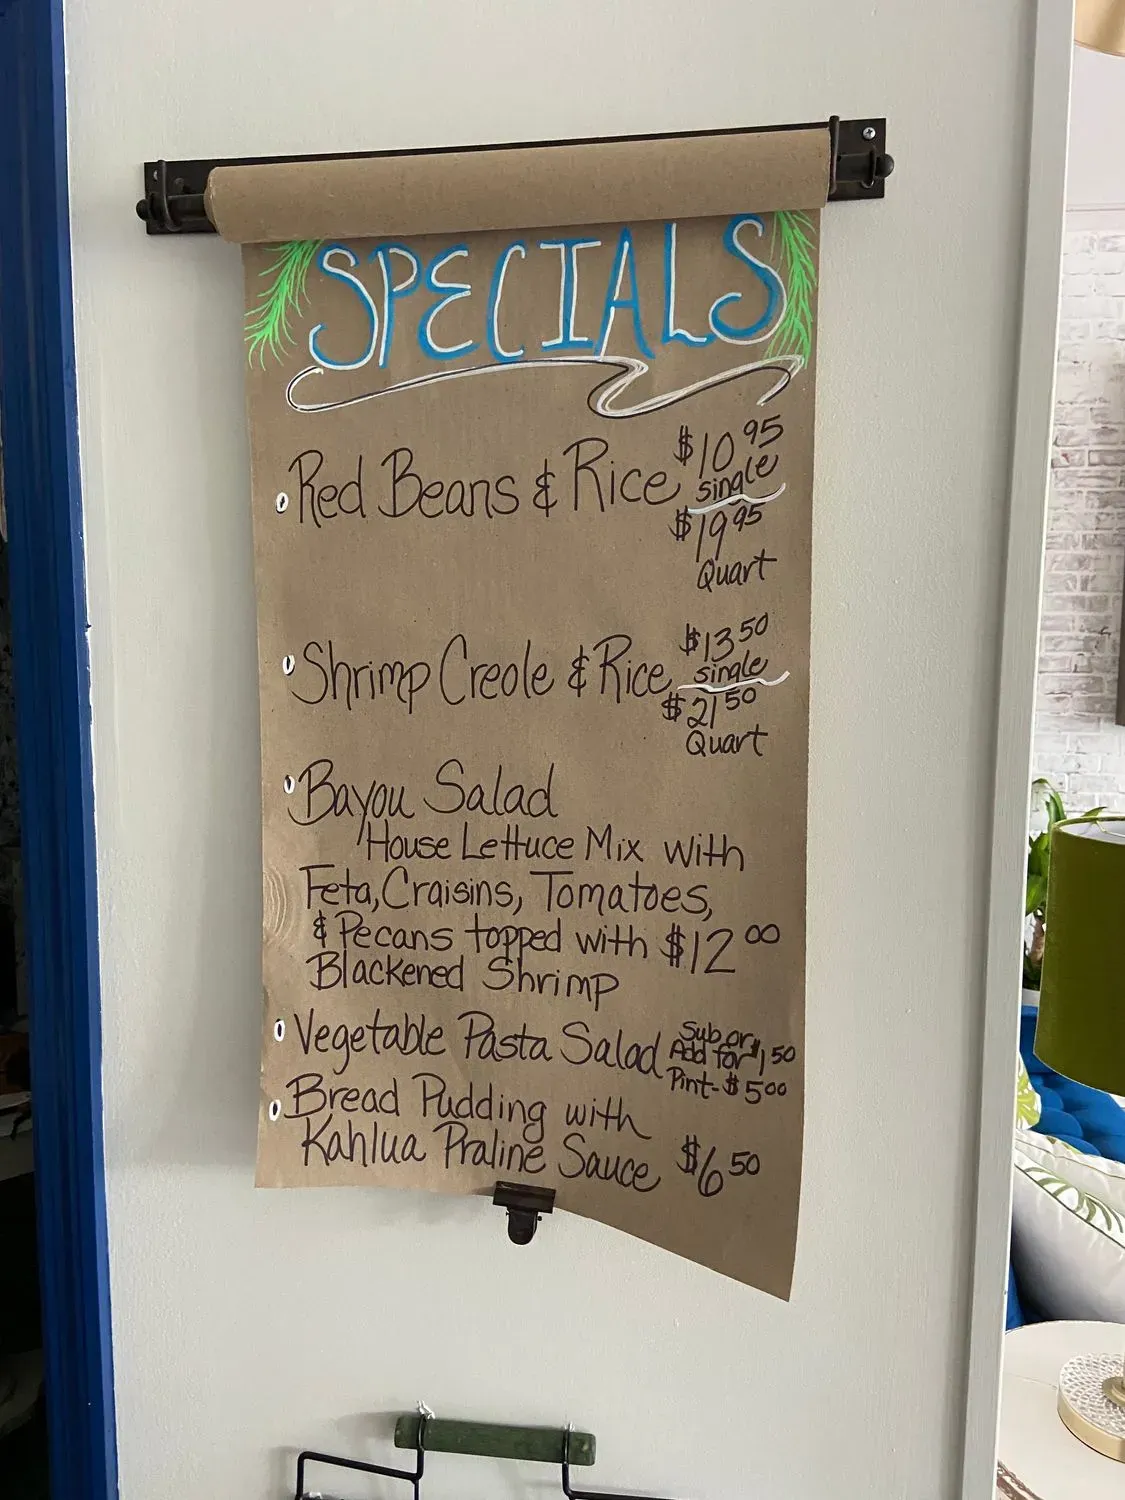 SPECIALS
Red Beans & Rice $10.95
single
$19.95
Quart
Shrimp Creole & Rice $13.50
single
$21.50
Quart
Bayou Salad
House Lettuce Mix with
Feta, Craisins, Tomatoes,
& Pecans topped with $12.00
Blackened Shrimp
Vegetable Pasta Salad Sub or
Add for $1.50
Pint- $5.00
Bread Pudding with
Kahlua Praline Sauce $6.50